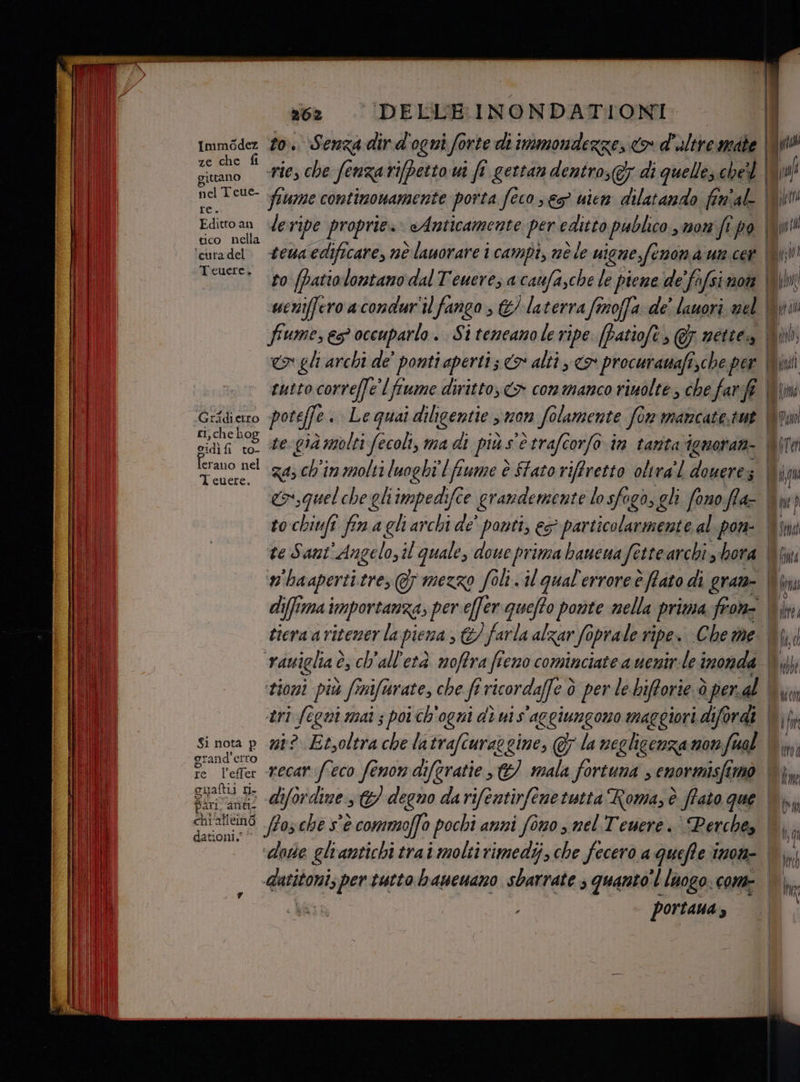 262 DELLE INONDATIONI
to. Senza dir d'ogni sorte di immondezze, & d'altre mate
rie, che senza rispetto ui si gettan dentro, & di quelle, che'l
fiume continouamente porta seco, & uien dilatando fin'al-
le ripe proprie. Anticamente per editto publico, non si po
teua edificare, nè lauorare i campi, nè le uigne, se non a un cer
to spatio lontano dal Teuere, a causa, che le piene de' fossi non
uenissero a condur'il fango, & la terra smossa de' lauori nel
fiume, & occuparlo. Si teneano le ripe spatiose, & nette,
& gli archi de' ponti aperti; & alti, & procurauasi, che per
tutto corresse'l fiume diritto, & con manco riuolte, che far si
potesse. Le quai diligentie, non solamente son mancate, tut
te già molti secoli, ma di più s'è trascorso in tanta ignoran-
za, ch'in molti luoghi'l fiume è stato ristretto oltra'l douere;
&, quel che gli impedisce grandemente lo sfogo, gli sono sta-
to chiusi fin a gli archi de' ponti, & particolarmente al pon-
te Sant'Angelo, il quale, doue prima haueua sette archi, hora
n'ha aperti tre, & mezzo soli. il qual'errore è stato di gran-
dissima importanza, per esser questo ponte nella prima fron-
tiera a ritener la piena, & farla alzar sopra le ripe. Che me
rauiglia è, ch'all'età nostra sieno cominciate a uenir le inonda
tioni più smisurate, che si ricordasse ò per le historie ò per al
tri segni mai; poi ch'ogni dì ui s'aggiungono maggiori disordi
ni? Et, oltra che la trascuraggine, & la negligenza non suol
recar seco se non disgratie, & mala fortuna, enormissimo
disordine, & degno da risentirsene tutta Roma, è stato que
sto, che s'è commosso pochi anni sono, nel Teuere. Perche,
doue gli antichi tra i molti rimedij, che fecero a queste inon-
datitoni, per tutto haueuano sbarrate, quanto'l luogo com-
portaua,
Immōdez
ze che si
gittano
nel Teue-
re.
Editto an
tico nella
cura del
Teuere.
Grādi erro
ri, che hog
gidì si to-
lerano nel
Teuere.
Si nota p
grand'erro
re l'esser
guasti i ri-
pari anti-
chi
dationi.